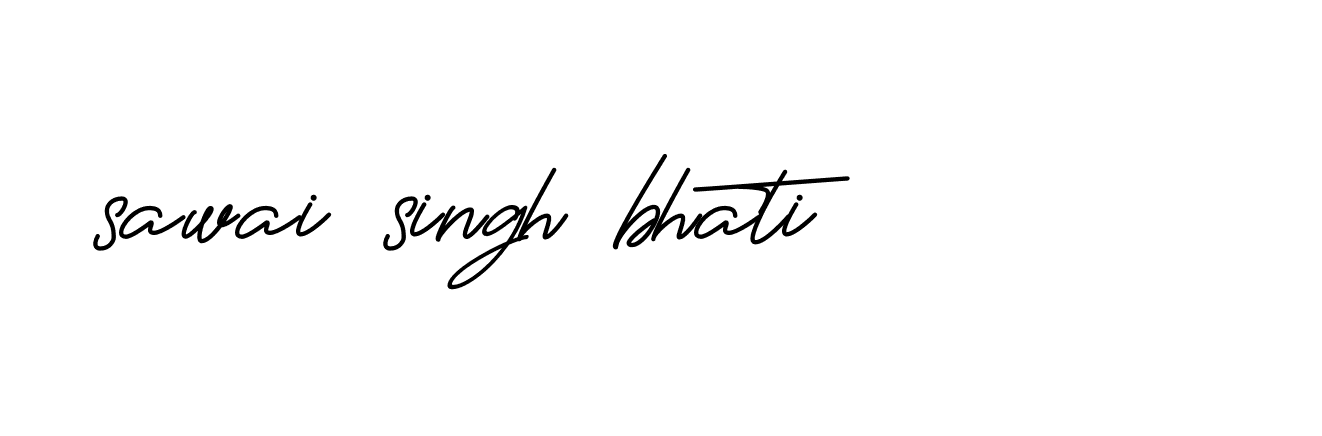 sawai singh bhati